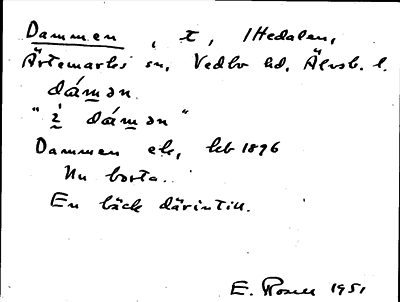 Dammen, t, 1 Hedalen,
Ärtemarks sn, Vedbo hd, Älvsb. l.
dámən
"i̊ dámən"
Dammen ek, hb 1896
Nu borta.
En bäck därintill.
E. Rosell 1951